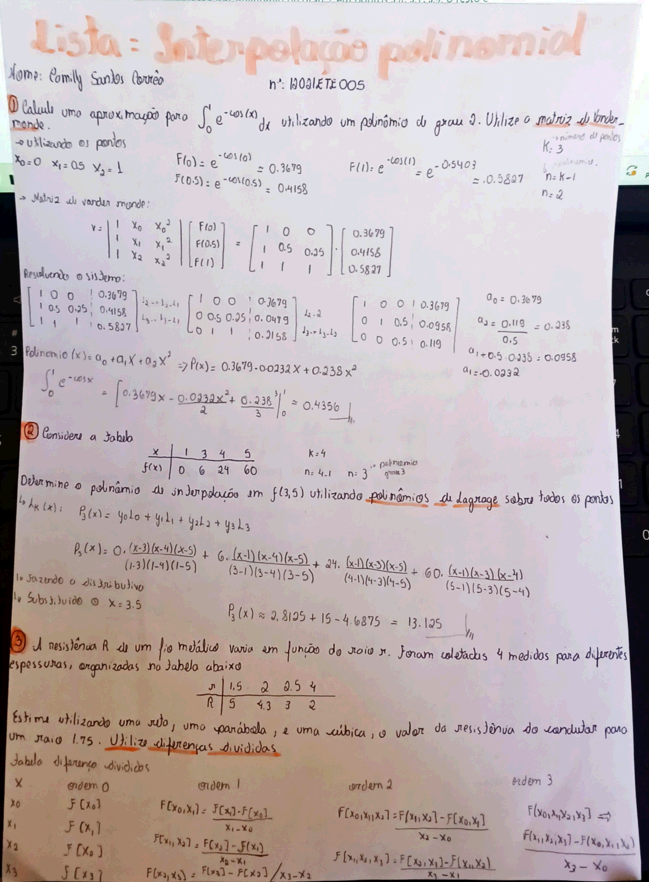 Lista = Interpolação polinomial
Nome: Camilly Santos Corrêa nº: 12021ETE005
① Calcule uma aproximação para ∫₀¹ e^-cos(x) dx utilizando um polinômio de grau 2. Utilize a matriz de Vander-
monde.
→ utilizando os pontos
x₀=0 x₁=0.5 x₂=1
F(0) = e^-cos(0) = 0.3679
F(0.5) = e^-cos(0.5) = 0.4158
F(1) = e^-cos(1) = e^-0.5403 = 0.5827
número de pontos
K=3
n=k-1
n=2
→ Matriz de vander monde:
V = | 1 x₀ x₀² | | F(0) | = [ 1 0 0 ] · [ 0.3679 ]
| 1 x₁ x₁² | | F(0.5) | [ 1 0.5 0.25 ] [ 0.4158 ]
| 1 x₂ x₂² | | F(1) | [ 1 1 1 ] [ 0.5827 ]
Resolvendo o sistema:
[ 1 0 0 ¦ 0.3679 ] [ 1 0 0 ¦ 0.3679 ] [ 1 0 0 ¦ 0.3679 ]
[ 1 0.5 0.25 ¦ 0.4158 ] L₂→L₂-L₁ [ 0 0.5 0.25 ¦ 0.0479 ] L₂·2 [ 0 1 0.5 ¦ 0.0958 ]
[ 1 1 1 ¦ 0.5827 ] L₃→L₃-L₁ [ 0 1 1 ¦ 0.2158 ] L₃→L₃-L₂ [ 0 0 0.5 ¦ 0.119 ]
a₀ = 0.3679
a₂ = 0.119/0.5 = 0.238
a₁+0.5·0.238 = 0.0958
a₁ = -0.0232
Polinomio (x) = a₀ + a₁X + a₂X² ⇒ P(x) = 0.3679 - 0.0232X + 0.238x²
∫₀¹ e^-cosx = [0.3679x - 0.0232x²/2 + 0.238/3]₀¹ = 0.4356
② Considere a tabela
x | 1 3 4 5
f(x) | 0 6 24 60
K=4
n=4-1 n=3 → polinomio grau 3
Determine o polinômio de interpolação em f(3,5) utilizando polinômios de Lagrage sobre todos os pontos
↳ Lₖ(x): P₃(x) = y₀L₀ + y₁L₁ + y₂L₂ + y₃L₃
P₃(x) = 0·(x-3)(x-4)(x-5)/(1-3)(1-4)(1-5) + 6·(x-1)(x-4)(x-5)/(3-1)(3-4)(3-5) + 24·(x-1)(x-3)(x-5)/(4-1)(4-3)(4-5) + 60·(x-1)(x-3)(x-4)/(5-1)(5-3)(5-4)
↳ fazendo a distributiva
↳ Substituido o x=3.5
P₃(x) ≈ 2.8125 + 15 - 4.6875 = 13.125
③ A resistência R de um fio metálico varia em função do raio r. Foram coletadas 4 medidas para diferentes
espessuras, organizadas na tabela abaixo
r | 1.5 2 2.5 4
R | 5 4.3 3 2
Estime utilizando uma reta, uma parábola, e uma cúbica, o valor da resistência do condutor para
um raio 1.75. Utilize diferenças divididas
tabela diferença divididas
X ordem 0 ordem 1 ordem 2 ordem 3
x₀ F[x₀] F[x₀,x₁] = F[x₁]-F[x₀]/x₁-x₀ F[x₀,x₁,x₂] = F[x₁,x₂]-F[x₀,x₁]/x₂-x₀ F[x₀,x₁,x₂,x₃] ⇒
x₁ F[x₁]
x₂ F[x₂] F[x₁,x₂] = F[x₂]-F[x₁]/x₂-x₁ F[x₁,x₂,x₃] = F[x₂,x₃]-F[x₁,x₂]/x₃-x₁ F[x₁,x₂,x₃]-F[x₀,x₁,x₂]/x₃-x₀
x₃ F[x₃] F[x₂,x₃] = F[x₃]-F[x₂]/x₃-x₂